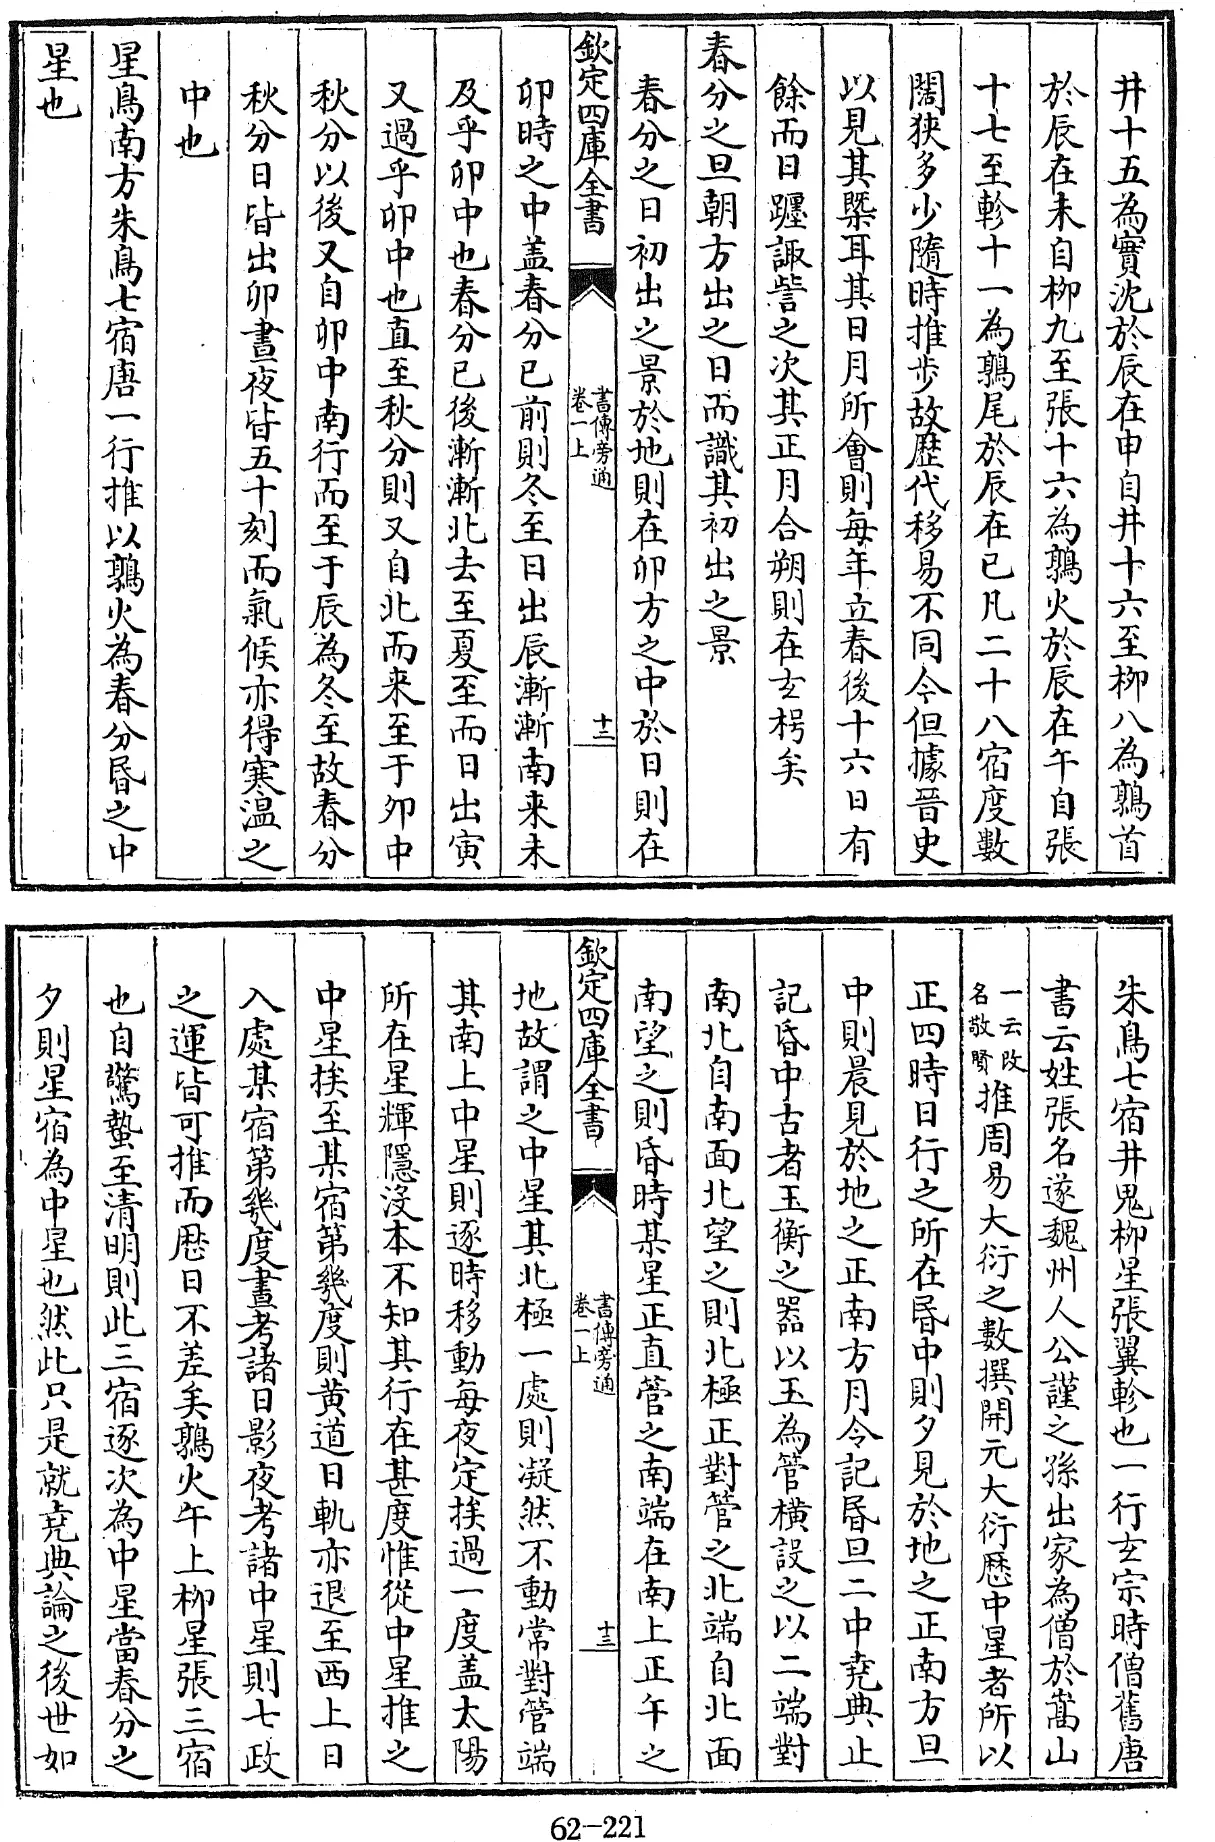 井十五為實沈於辰在申自井十六至柳八為鶉首
於辰在未自柳九至張十六為鶉火於辰在午自張
十七至軫十一為鶉尾於辰在巳凡二十八宿度數
闊狹多少隨時推步故歴代移易不同今但據晉史
以見其槩耳其日月所會則每年立春後十六日有
餘而日躔諏訾之次其正月合朔則在玄枵矣
春分之旦朝方出之日而識其初出之景
春分之日初出之景於地則在卯方之中於日則在
欽定四庫全書
書傳旁通
卷一上
十二
卯時之中盖春分已前則冬至日出辰漸漸南来未
及乎卯中也春分已後漸漸北去至夏至而日出寅
又過乎卯中也直至秋分則又自北而来至于夘中
秋分以後又自卯中南行而至于辰為冬至故春分
秋分日皆出卯晝夜皆五十刻而氣候亦得寒温之
中也
星鳥南方朱鳥七宿唐一行推以鶉火為春分昏之中
星也
朱鳥七宿井鬼柳星張翼軫也一行玄宗時僧舊唐
書云姓張名遂魏州人公謹之孫出家為僧於嵩山
一云改
名敬賢
推周易大衍之數撰開元大衍歴中星者所以
正四時日行之所在昬中則夕見於地之正南方旦
中則晨見於地之正南方月令記昬旦二中堯典止
記昏中古者玉衡之器以玉為管横設之以二端對
南北自南面北望之則北極正對管之北端自北面
南望之則昏時某星正直管之南端在南上正午之
欽定四庫全書
書傳旁通
卷一上
十三
地故謂之中星其北極一處則凝然不動常對管端
其南上中星則逐時移動每夜定挨過一度盖太陽
所在星輝隱沒本不知其行在甚度惟從中星推之
中星挨至某宿第幾度則黄道日軌亦退至西上日
入處某宿第幾度晝考諸日影夜考諸中星則七政
之運皆可推而厯日不差矣鶉火午上柳星張三宿
也自驚蟄至清明則此三宿逐次為中星當春分之
夕則星宿為中星也然此只是就堯典論之後世如
62-221